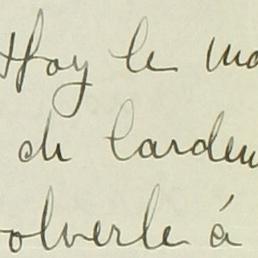 Hoy le ma
de Carden
olverle á